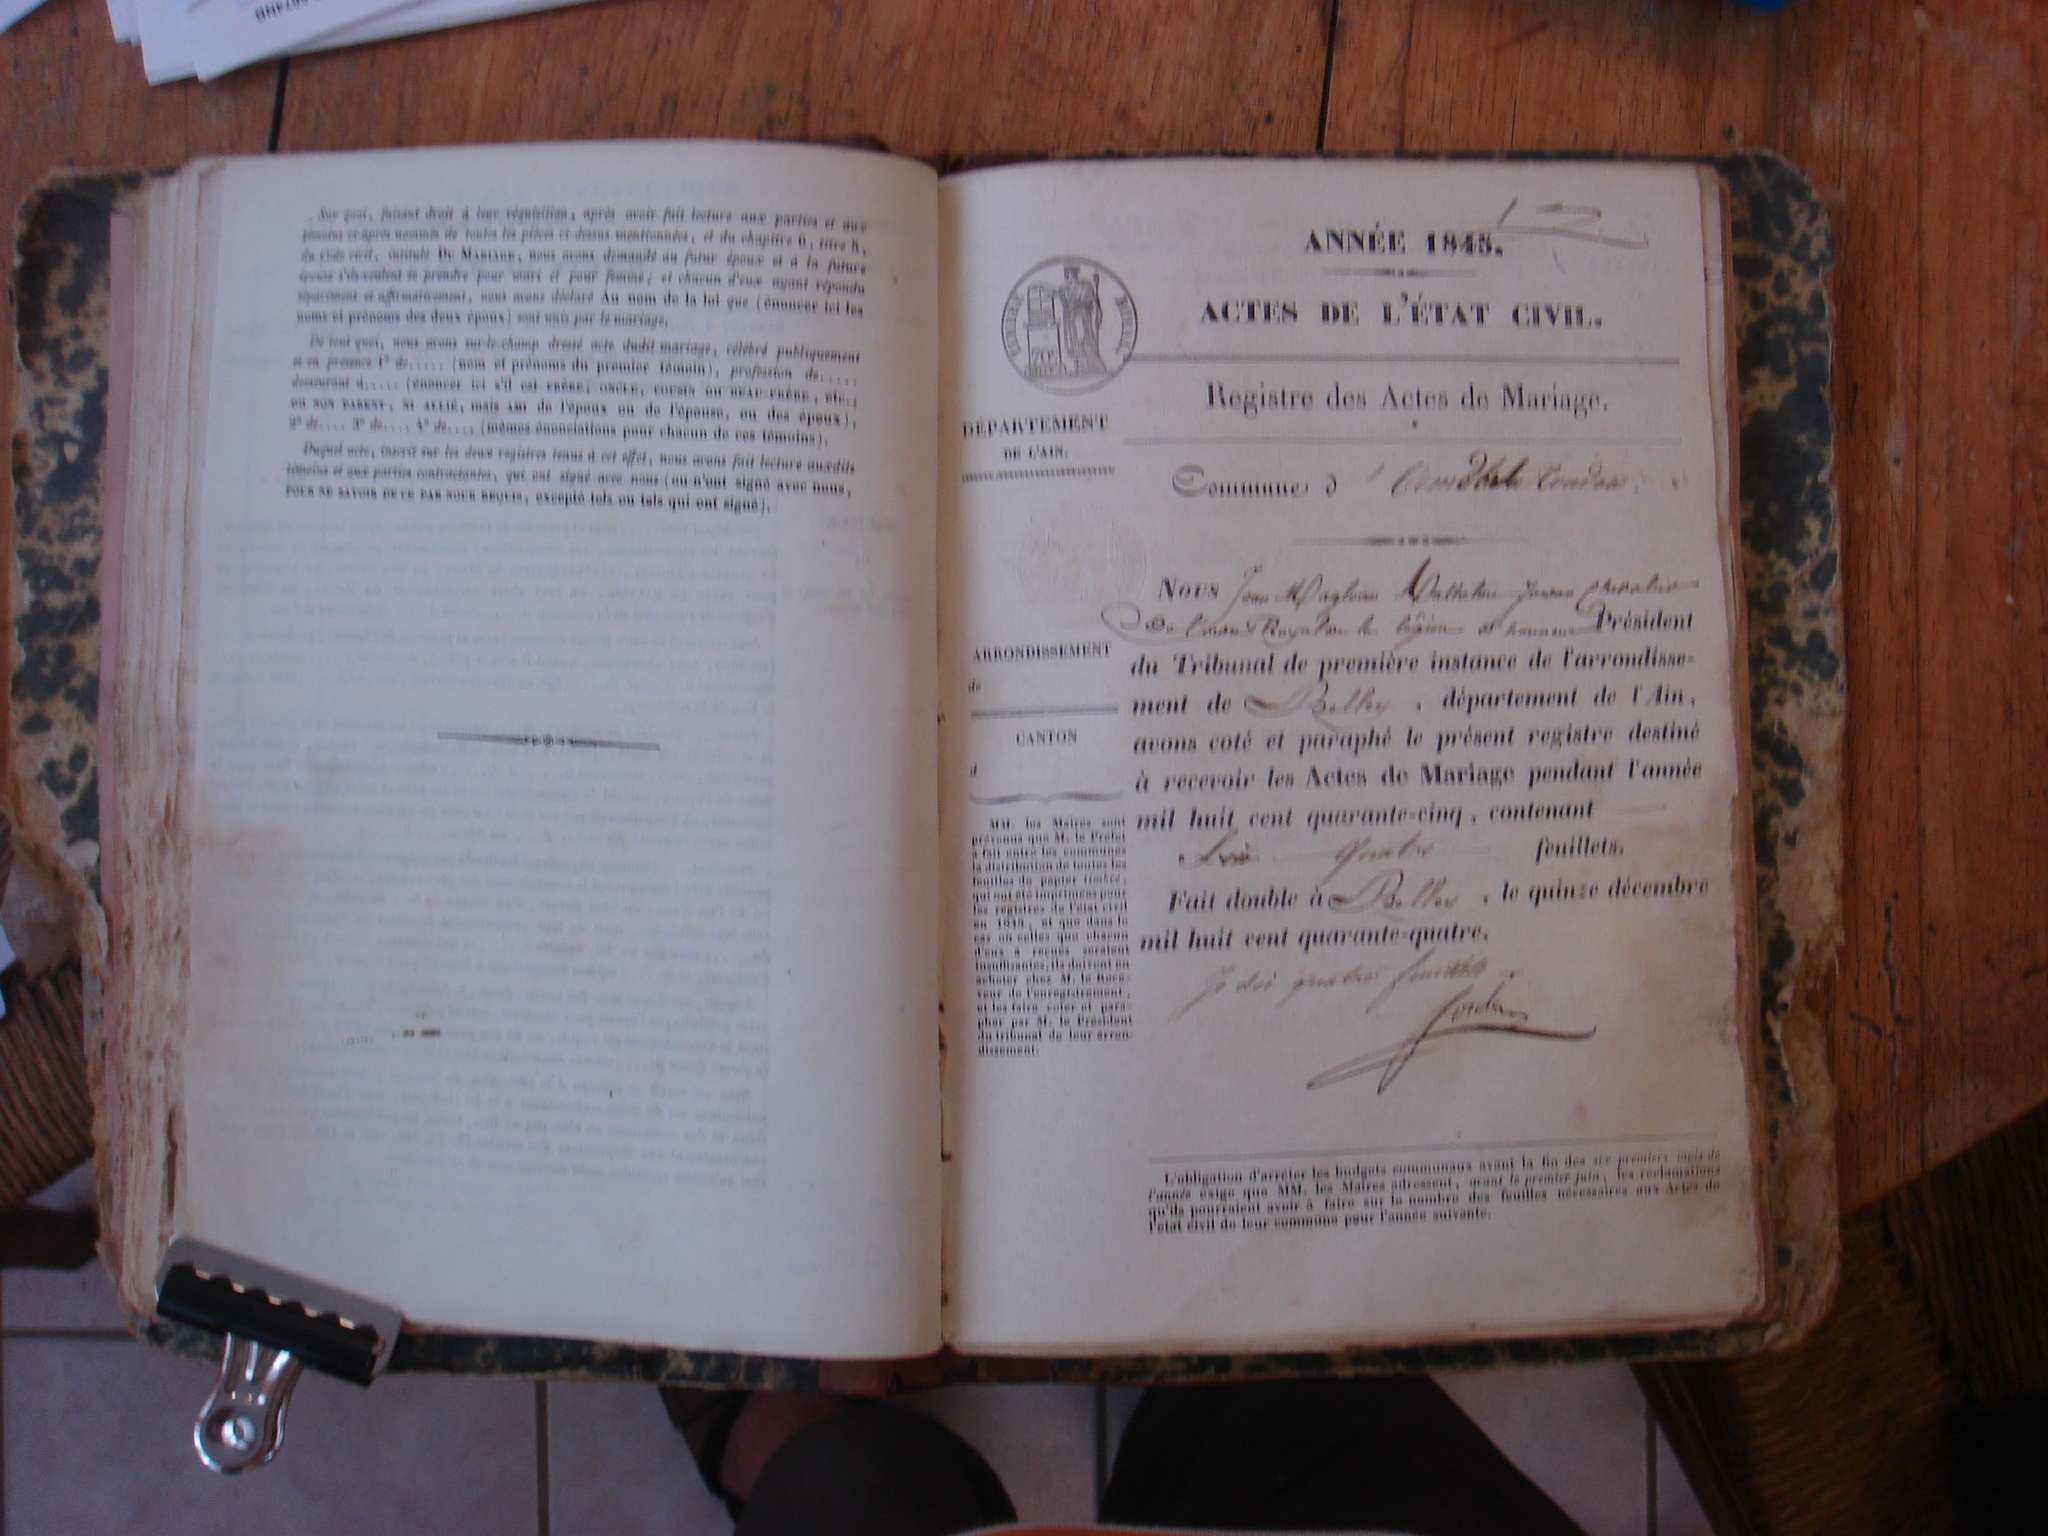 Sur quoi, faisant droit à leur réquisition, après avoir fait lecture aux parties et aux
témoins ci-après nommés de toutes les pièces ci-dessus mentionnées, et du chapitre 6, titre 5,
du Code civil, intitulé DU MARIAGE, nous avons demandé au futur époux et à la future
épouse s'ils veulent se prendre pour mari et pour femme; et chacun d'eux ayant répondu
séparément et affirmativement, nous avons déclaré Au nom de la loi que (énoncer ici les
noms et prénoms des deux époux) sont unis par le mariage.
De tout quoi, nous avons sur-le-champ dressé acte dudit mariage, célébré publiquement
et en présence 1° de..... (nom et prénoms du premier témoin), profession de.....
demeurant à..... (énoncer ici s'il est FRÈRE, ONCLE, COUSIN OU BEAU-FRÈRE, etc.;
OU NON PARENT, NI ALLIÉ, mais AMI de l'époux ou de l'épouse, ou des époux),
2° de.... 3° de.... 4° de.... (mêmes énonciations pour chacun de ces témoins).
Duquel acte, inscrit sur les deux registres tenus à cet effet, nous avons fait lecture auxdits
témoins et aux parties contractantes, qui ont signé avec nous (ou n'ont signé avec nous,
POUR NE SAVOIR DE CE PAR NOUR REQUIS, excepté tels ou tels qui ont signé).
ANNÉE 1845.
ACTES DE L'ÉTAT CIVIL.
TIMBRE ROYAL
70c
Registre des Actes de Mariage.
DÉPARTEMENT
DE L'AIN.
Commune d
Nous Jean
de l'ordre Royal de la légion d'honneur Président
du Tribunal de première instance de l'arrondisse-
ment de Belley, département de l'Ain,
avons coté et paraphé le présent registre destiné
à recevoir les Actes de Mariage pendant l'année
mil huit cent quarante-cinq, contenant
quatre feuillets.
Fait double à Belley, le quinze décembre
mil huit cent quarante-quatre.
quatre feuillets
ARRONDISSEMENT
de
CANTON
d
MM. les Maires sont
prévenus que M. le Préfet
a fait entre les communes
la distribution de toutes les
feuilles de papier timbré,
qui ont été imprimées pour
les registres de l'état civil
en 1845, et que dans le
cas où celles que chacun
d'eux a reçues seraient
insuffisantes, ils doivent en
acheter chez M. le Rece-
veur de l'enregistrement,
et les faire coter et para-
pher par M. le Président
du tribunal de leur arron-
dissement.
L'obligation d'arrêter les budgets communaux avant la fin des six premiers mois de
l'année exige que MM. les Maires adressent, avant le premier juin, les réclamations
qu'ils pourraient avoir à faire sur le nombre des feuilles nécessaires aux Actes de
l'état civil de leur commune pour l'année suivante.